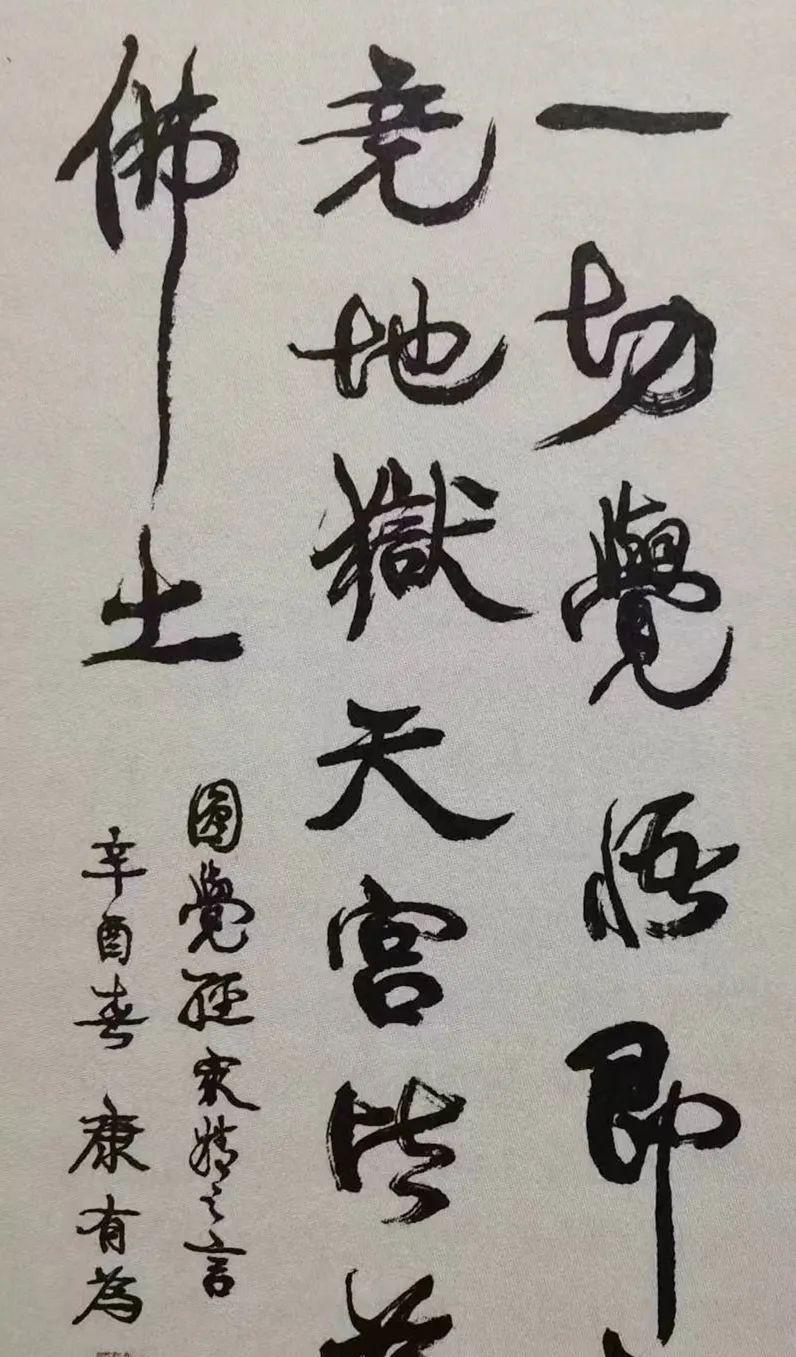 一切覺悟即
竟地獄天宮皆
佛土
圓覺經最精之言
辛酉春 康有為